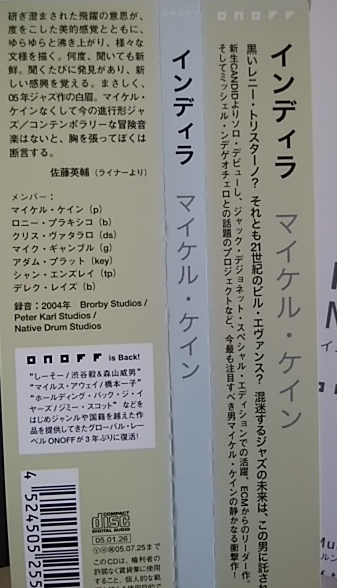 研ぎ澄まされた飛躍の意思が、
度をこした美的感覚とともに、
ゆらゆらと沸き上がり、様々な
文様を描く。何度、聞いても新
鮮。聞くたびに発見があり、新
しい感興を覚える。まさしく、
05年ジャズ作の白眉。マイケル・
ケインなくして今の進行形ジャ
ズ／コンテンポラリーな冒険音
楽はないと、胸を張ってぼくは
断言する。
佐藤英輔（ライナーより）
メンバー：
マイケル・ケイン（p）
ロニー・プラキシコ（b）
クリス・ヴァタラロ（ds）
マイク・ギャンブル（g）
アダム・プラット（key）
シャン・エンズレイ（tp）
デレク・レイズ（b）
録音：2004年 Brorby Studios /
Peter Karl Studios /
Native Drum Studios
ONOFF is Back!
"しーそー/渋谷毅&森山威男"
"マイルス・アウェイ/橋本一子"
"ホールディング・バック・ジ・イ
ヤーズ/ジミー・スコット" などを
はじめジャンルや国籍を越えた作
品を提供してきたグローバル・レー
ベルONOFFが３年ぶりに復活！
4524505255
COMPACT
disc
DIGITAL AUDIO
05.01.26
05.07.25まで
このCDは、権利者の
許諾なく賃貸業に使用
すること、個人的な範
インディラ マイケル・ケイン
ONOFF
インディラ マイケル・ケイン
黒いレニー・トリスターノ？ それとも21世紀のビル・エヴァンス？ 混迷するジャズの未来は、この男に託され
新生CANDIDよりソロ・デビューし、ジャック・デジョネット・スペシャル・エディションでの活躍、ECMからのリーダー作、
そしてミッシェル・ンデゲオチェロとの話題のプロジェクトなど、今最も注目すべき男マイケル・ケインの静かなる衝撃作